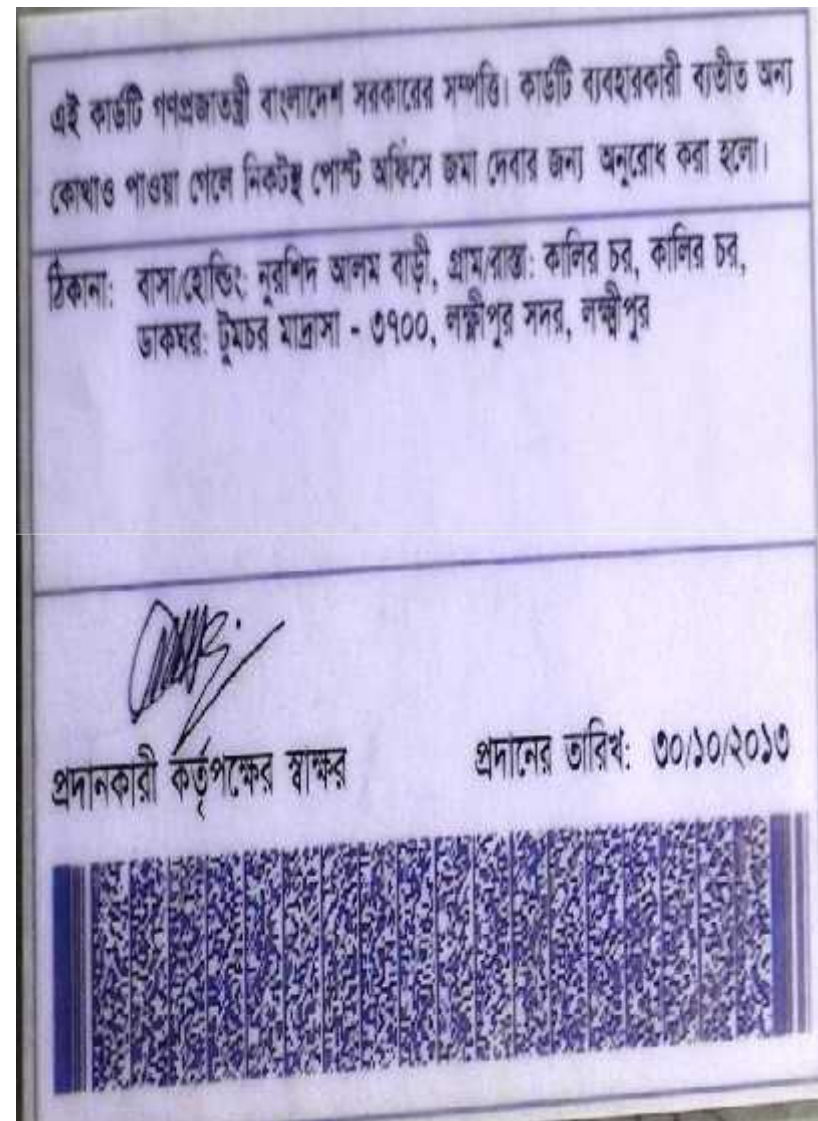 এই কার্ডটি গণপ্রজাতন্ত্রী বাংলাদেশ সরকারের সম্পত্তি। কার্ডটি ব্যবহারকারী ব্যতীত অন্য
কোথাও পাওয়া গেলে নিকটস্থ পোস্ট অফিসে জমা দেবার জন্য অনুরোধ করা হলো।
ঠিকানা: বাসা/হোল্ডিং: নুরশিদ আলম বাড়ী, গ্রাম/রাস্তা: কালির চর, কালির চর,
ডাকঘর: টুমচর মাদ্রাসা - ৩৭০০, লক্ষ্মীপুর সদর, লক্ষ্মীপুর
প্রদানকারী কর্তৃপক্ষের স্বাক্ষর প্রদানের তারিখ: ৩০/১০/২০১৩